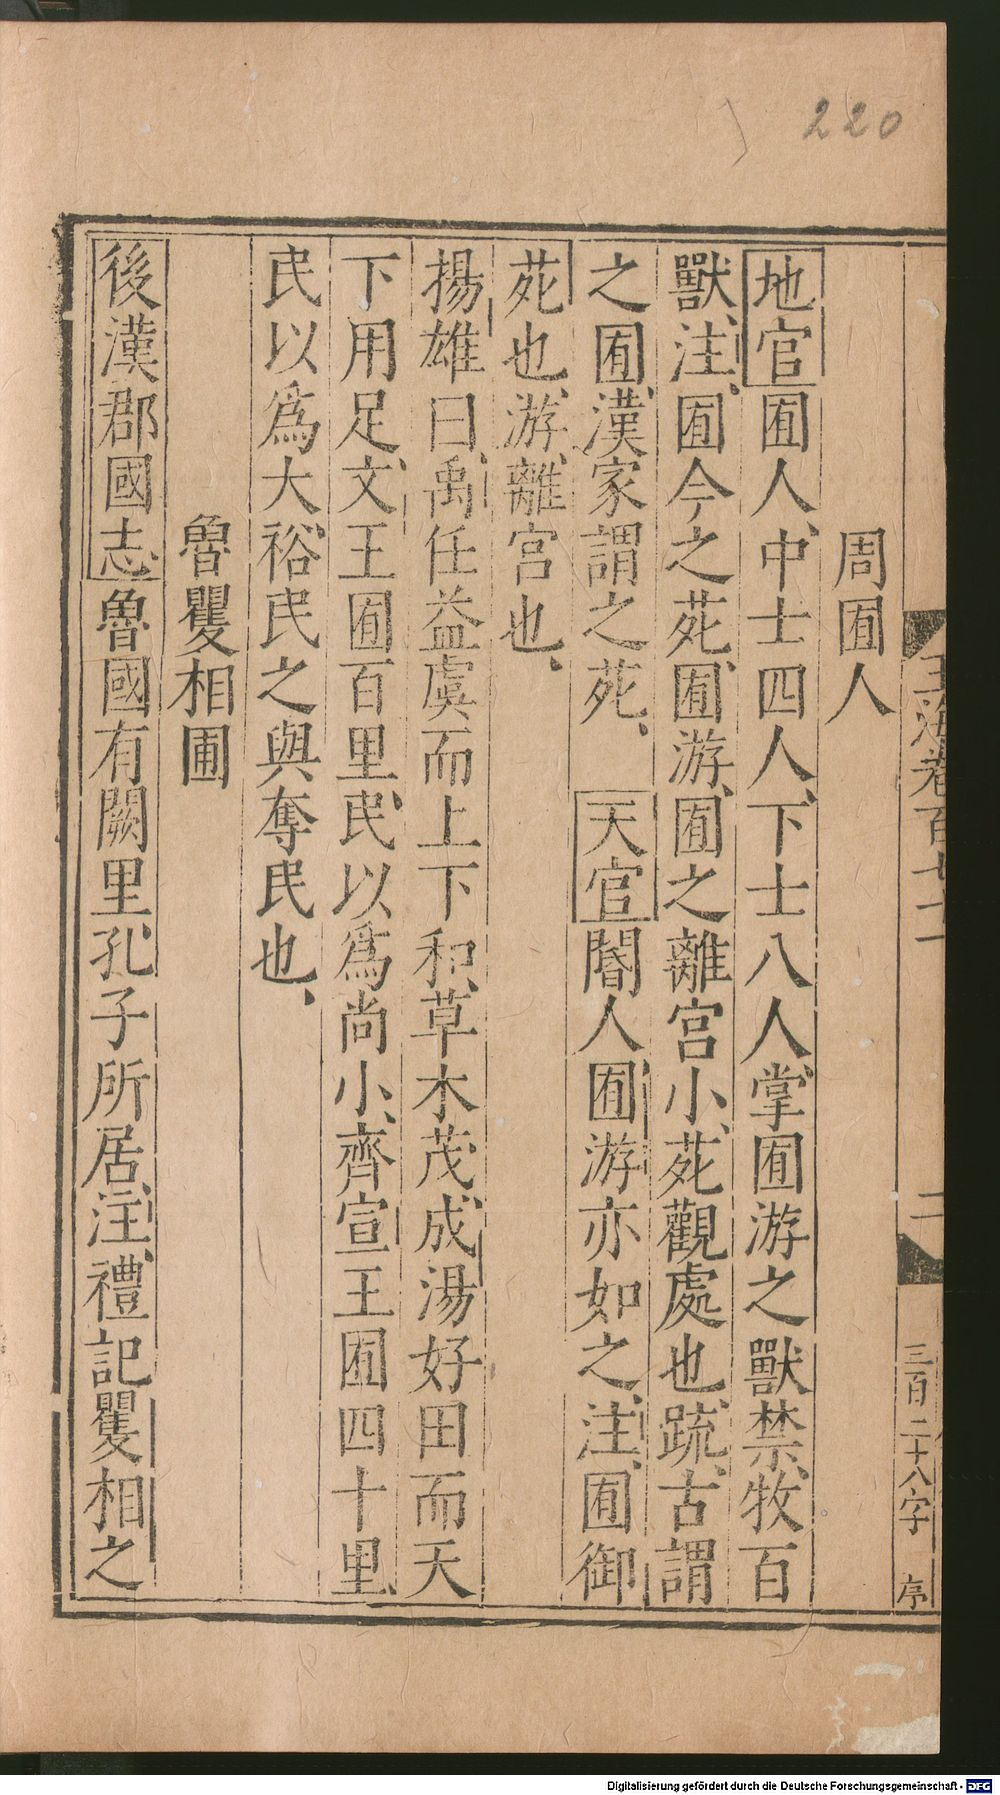 220
玉海卷百七十一
二
三百二十八字
序
周囿人
地官囿人、中士四人、下士八人、掌囿游之獸禁、牧百
獸、注、囿今之苑、囿游、囿之離宮小苑觀處也、疏、古謂
之囿、漢家謂之苑、天官閽人囿游亦如之、注、囿御
苑也、游、離宮也、
揚雄曰、禹任益虞而上下和、草木茂、成湯好田而天
下用足、文王囿百里、民以爲尚小、齊宣王囿四十里
民以爲大、裕民之與奪民也、
魯矍相圃
後漢郡國志魯國有闕里、孔子所居、注、禮記矍相之
Digitalisierung gefördert durch die Deutsche Forschungsgemeinschaft - DFG